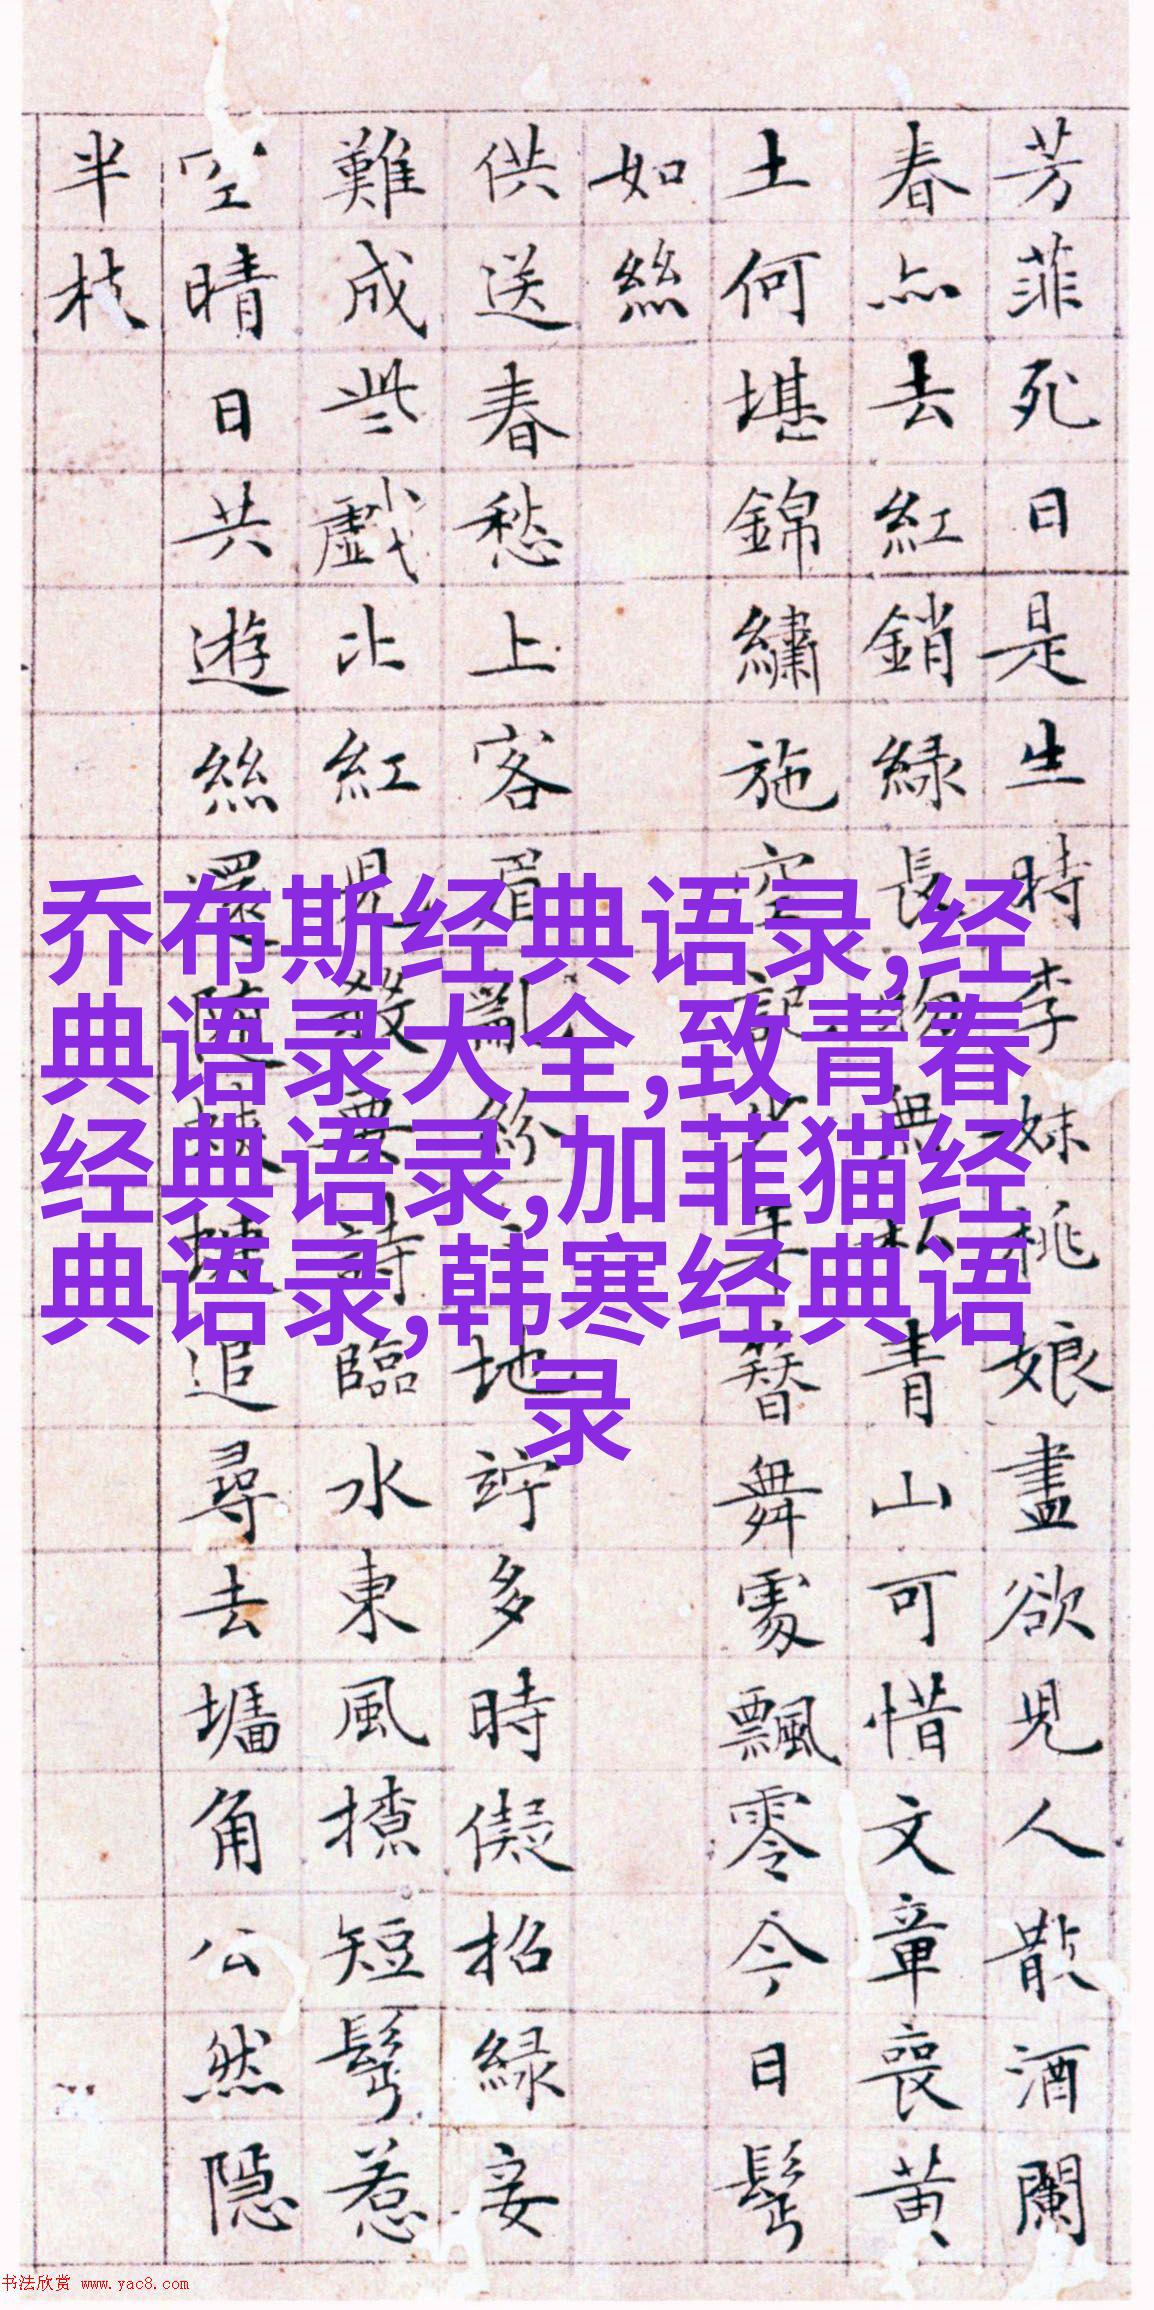 芳菲死日是生時李妹桃娘盡欲兒人散酒闌
春亦去紅銷綠長物無私青山可惜文章喪黃
土何堪錦繡施空記少年簪舞處飄零今日鬢
如絲
供送春愁上客眉亂紛〻地竚多時儗招綠妾
難成些戲比紅兒殺要詩臨水東風撩短鬢惹
空晴日共遊絲還隨蛺蝶追尋去墻角公然隱
半枝
乔布斯经典语录,经
典语录大全,致青春
经典语录,加菲猫经
典语录,韩寒经典语
录
书法欣赏 www.yac8.com